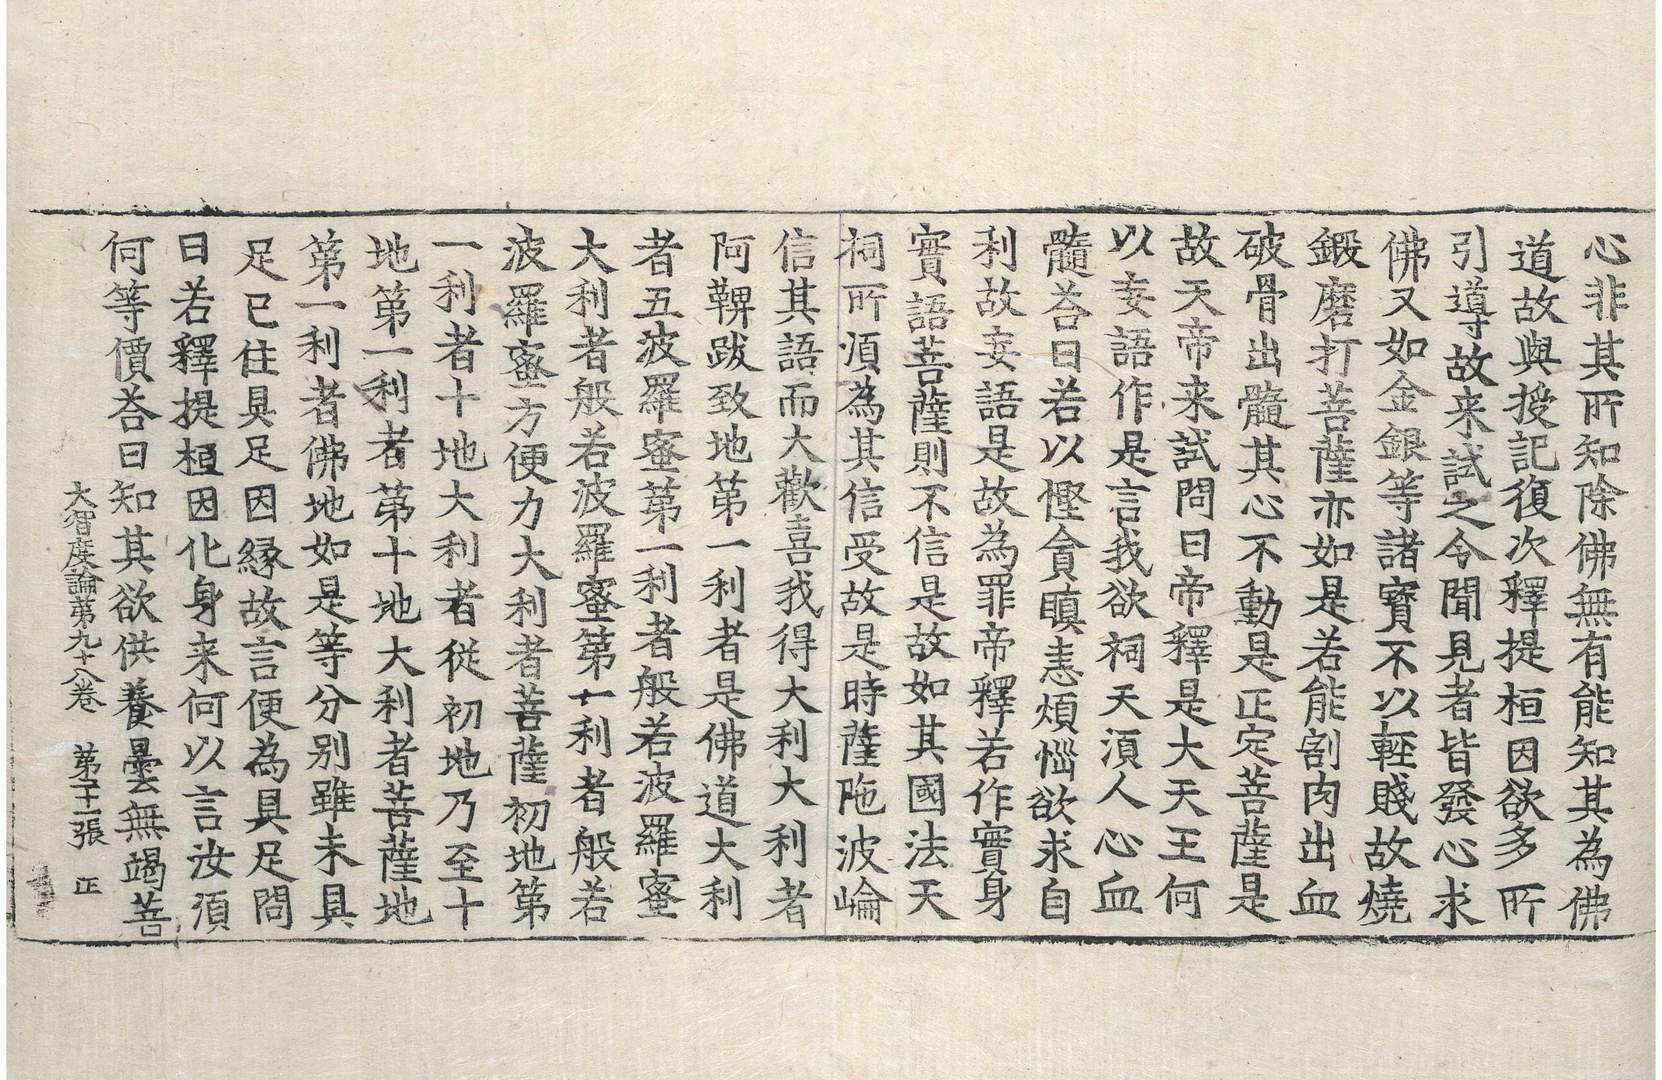 心非其所知除佛無有能知其為佛
道故與授記復次釋提桓因欲多所
引導故来試之令聞見者皆發心求
佛又如金銀等諸寶不以輕賤故燒
鍛磨打菩薩亦如是若能割肉出血
破骨出髓其心不動是正定菩薩是
故天帝来試問曰帝釋是大天王何
以妄語作是言我欲祠天湏人心血
髓荅曰若以慳貪瞋恚煩惱欲求自
利故妄語是故為罪帝釋若作實身
實語菩薩則不信是故如其國法天
祠所湏為其信受故是時薩陁波崘
信其語而大歡喜我得大利大利者
阿鞞跋致地第一利者是佛道大利
者五波羅蜜第一利者般若波羅蜜
大利者般若波羅蜜第一利者般若
波羅蜜方便力大利者菩薩初地第
一利者十地大利者從初地乃至十
地第一利者第十地大利者菩薩地
第一利者佛地如是等分別雖未具
足已住具足因緣故言便為具足問
曰若釋提桓因化身来何以言汝湏
何等價荅曰知其欲供養曇無竭菩
大智度論第九十八卷 第二十一張 正